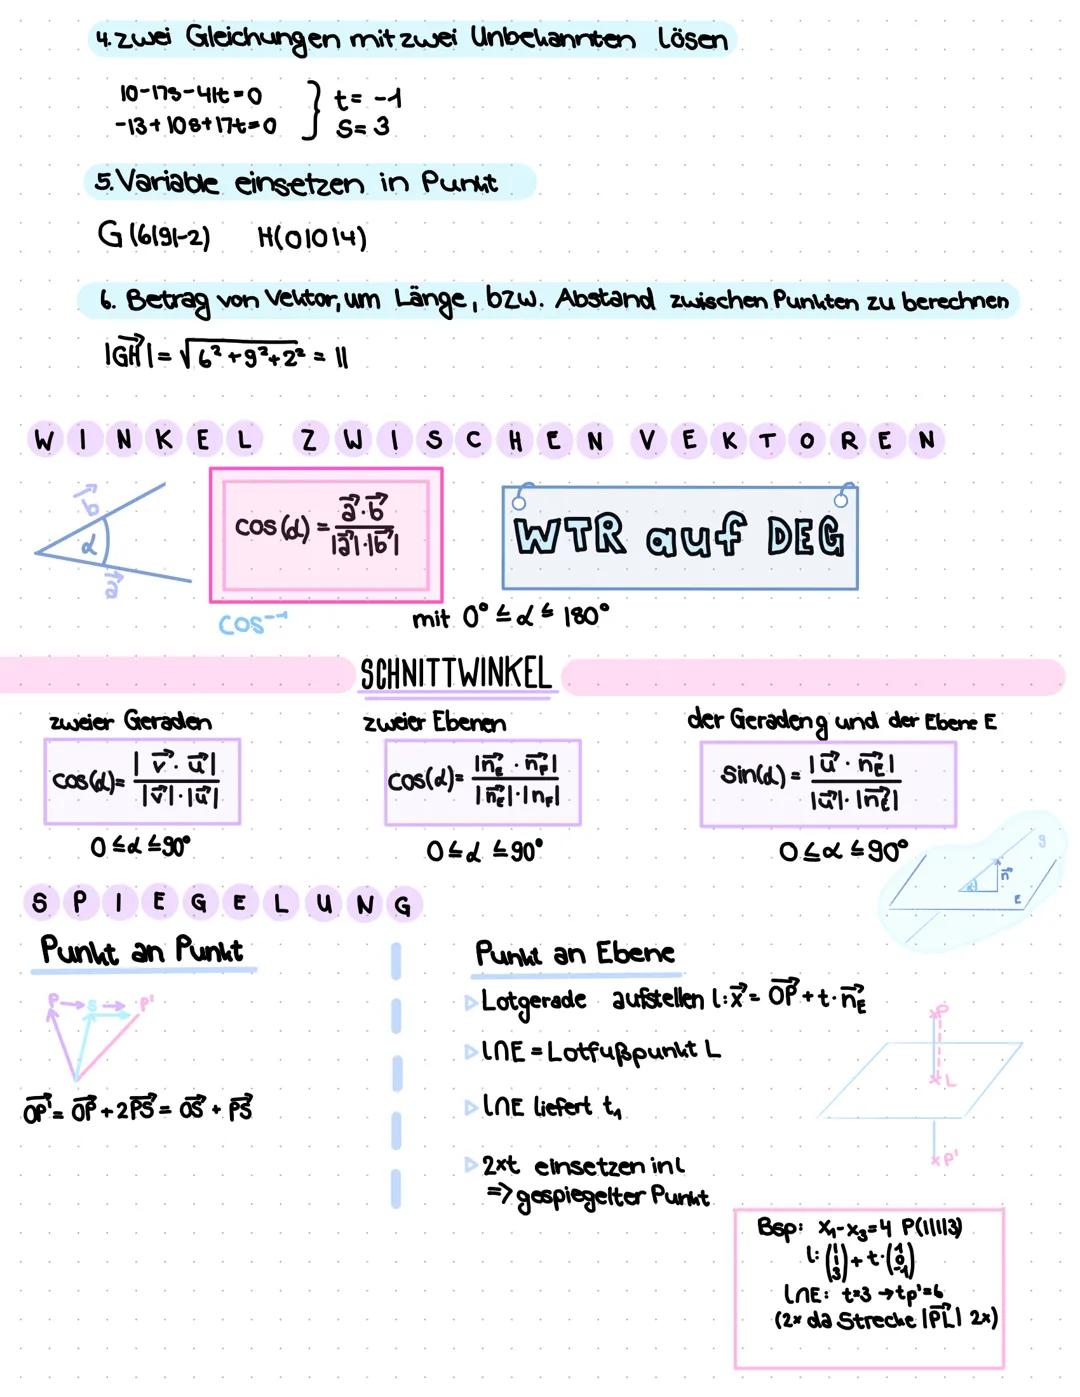 4. zwei Gleichungen mit zwei Unbekannten lösen
10-17s-41t=0 } t= -1
-13+10s+17t=0 s= 3
5. Variable einsetzen in Punkt
G (6|9|-2) H(0|0|4)
6. Betrag von Vektor, um Länge, bzw. Abstand zwischen Punkten zu berechnen
|GH⃗| = √6²+9²+2² = 11
WINKEL ZWISCHEN VEKTOREN
b⃗
α
a⃗
cos(α) = a⃗·b⃗ / |a⃗|·|b⃗|
WTR auf DEG
cos⁻¹
mit 0° ≤ α ≤ 180°
SCHNITTWINKEL
zweier Geraden
cos(α)= |v⃗·u⃗| / |v⃗|·|u⃗|
0≤α≤90°
zweier Ebenen
cos(α)= |n⃗E·n⃗F| / |n⃗E|·|nF|
0≤α≤90°
der Geraden g und der Ebene E
sin(α) = |u⃗·n⃗E| / |u⃗|·|n⃗E|
0≤α≤90°
g
n⃗
α
E
SPIEGELUNG
Punkt an Punkt
P S P'
OP'⃗= OP⃗+2PS⃗= OS⃗+PS⃗
Punkt an Ebene
▷ Lotgerade aufstellen l: x⃗= OP⃗+t·n⃗E
▷ l∩E = Lotfußpunkt L
▷ l∩E liefert t₁
▷ 2xt einsetzen in l
=> gespiegelter Punkt
P
L
P'
Bsp: x₁-x₃=4 P(1|1|3)
l: (1 1 3) + t·(1 0 -1)
l∩E: t=3 → tp'=6
(2x da Strecke |PL⃗| 2x)